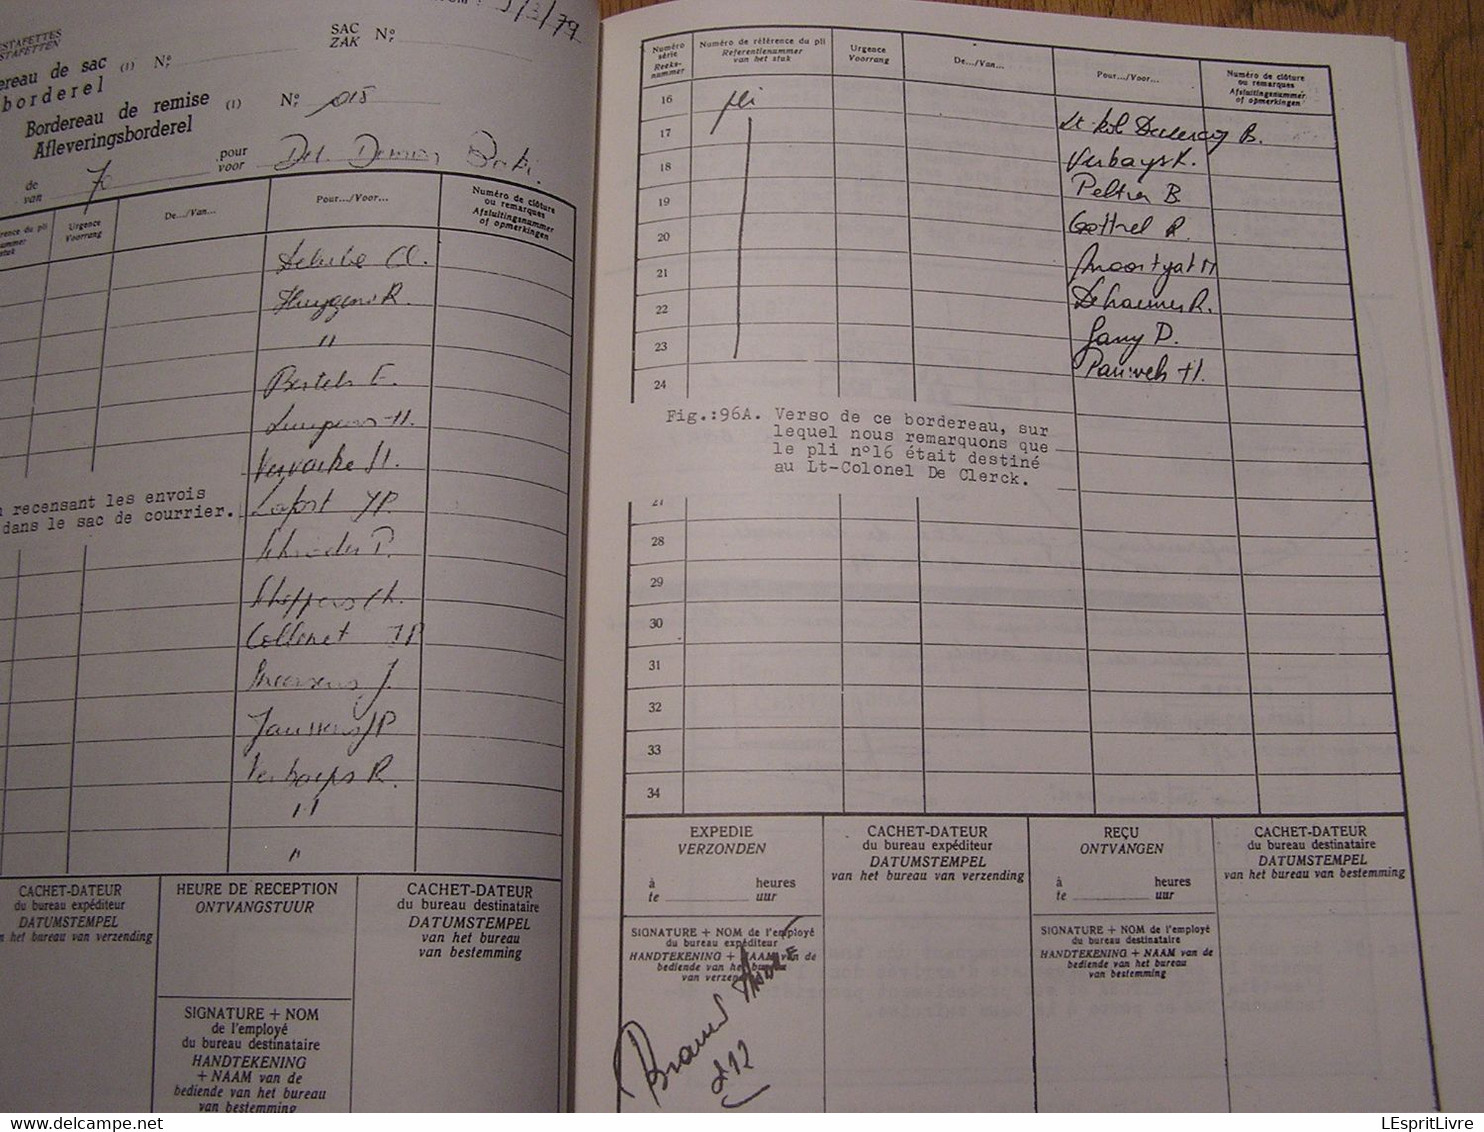 ESTAFETTES
ESTAFETTEN
SAC
ZAK Nº
/3/79
ereau de sac (1) Nº
borderel
Bordereau de remise (1) Nº 015
Afleveringsborderel
de
van 70 pour
voor Det.
rence du pli
Urgence
Voorrang
De.../Van...
Pour.../Voor...
Numéro de clôture
ou remarques
Afsluitingsnummer
of opmerkingen
Huygens R.
"
Bertels E.
Vervacke H.
Lafort JP.
Schröder P.
Scheppers Ch.
Collinet JP
J.
Janssens JP
Verbaeys R.
"
"
n recensant les envois
dans le sac de courrier.
CACHET-DATEUR
du bureau expéditeur
DATUMSTEMPEL
van het bureau van verzending
HEURE DE RECEPTION
ONTVANGSTUUR
CACHET-DATEUR
du bureau destinataire
DATUMSTEMPEL
van het bureau
van bestemming
SIGNATURE + NOM
de l'employé
du bureau destinataire
HANDTEKENING
+ NAAM van de
bediende van het bureau
van bestemming
Numéro
série
Reeks-
nummer
Numéro de référence du pli
Referentienummer
van het stuk
Urgence
Voorrang
De.../Van...
Pour.../Voor...
Numéro de clôture
ou remarques
Afsluitingsnummer
of opmerkingen
16 pli B.
17 Verbayst K.
18 B
19 Gottrel R.
20 M
21 R.
22 Jamy D.
23 Pauwels H.
24
Fig.:96A. Verso de ce bordereau, sur
lequel nous remarquons que
le pli nº16 était destiné
au Lt-Colonel De Clerck.
27
28
29
30
31
32
33
34
EXPEDIE
VERZONDEN
à heures
te uur
CACHET-DATEUR
du bureau expéditeur
DATUMSTEMPEL
van het bureau van verzending
REÇU
ONTVANGEN
à heures
te uur
CACHET-DATEUR
du bureau destinataire
DATUMSTEMPEL
van het bureau van bestemming
SIGNATURE + NOM de l'employé
du bureau expéditeur
HANDTEKENING + NAAM van de
bediende van het bureau
van verzending
SIGNATURE + NOM de l'employé
du bureau destinataire
HANDTEKENING + NAAM van de
bediende van het bureau
van bestemming
LEspritLivre